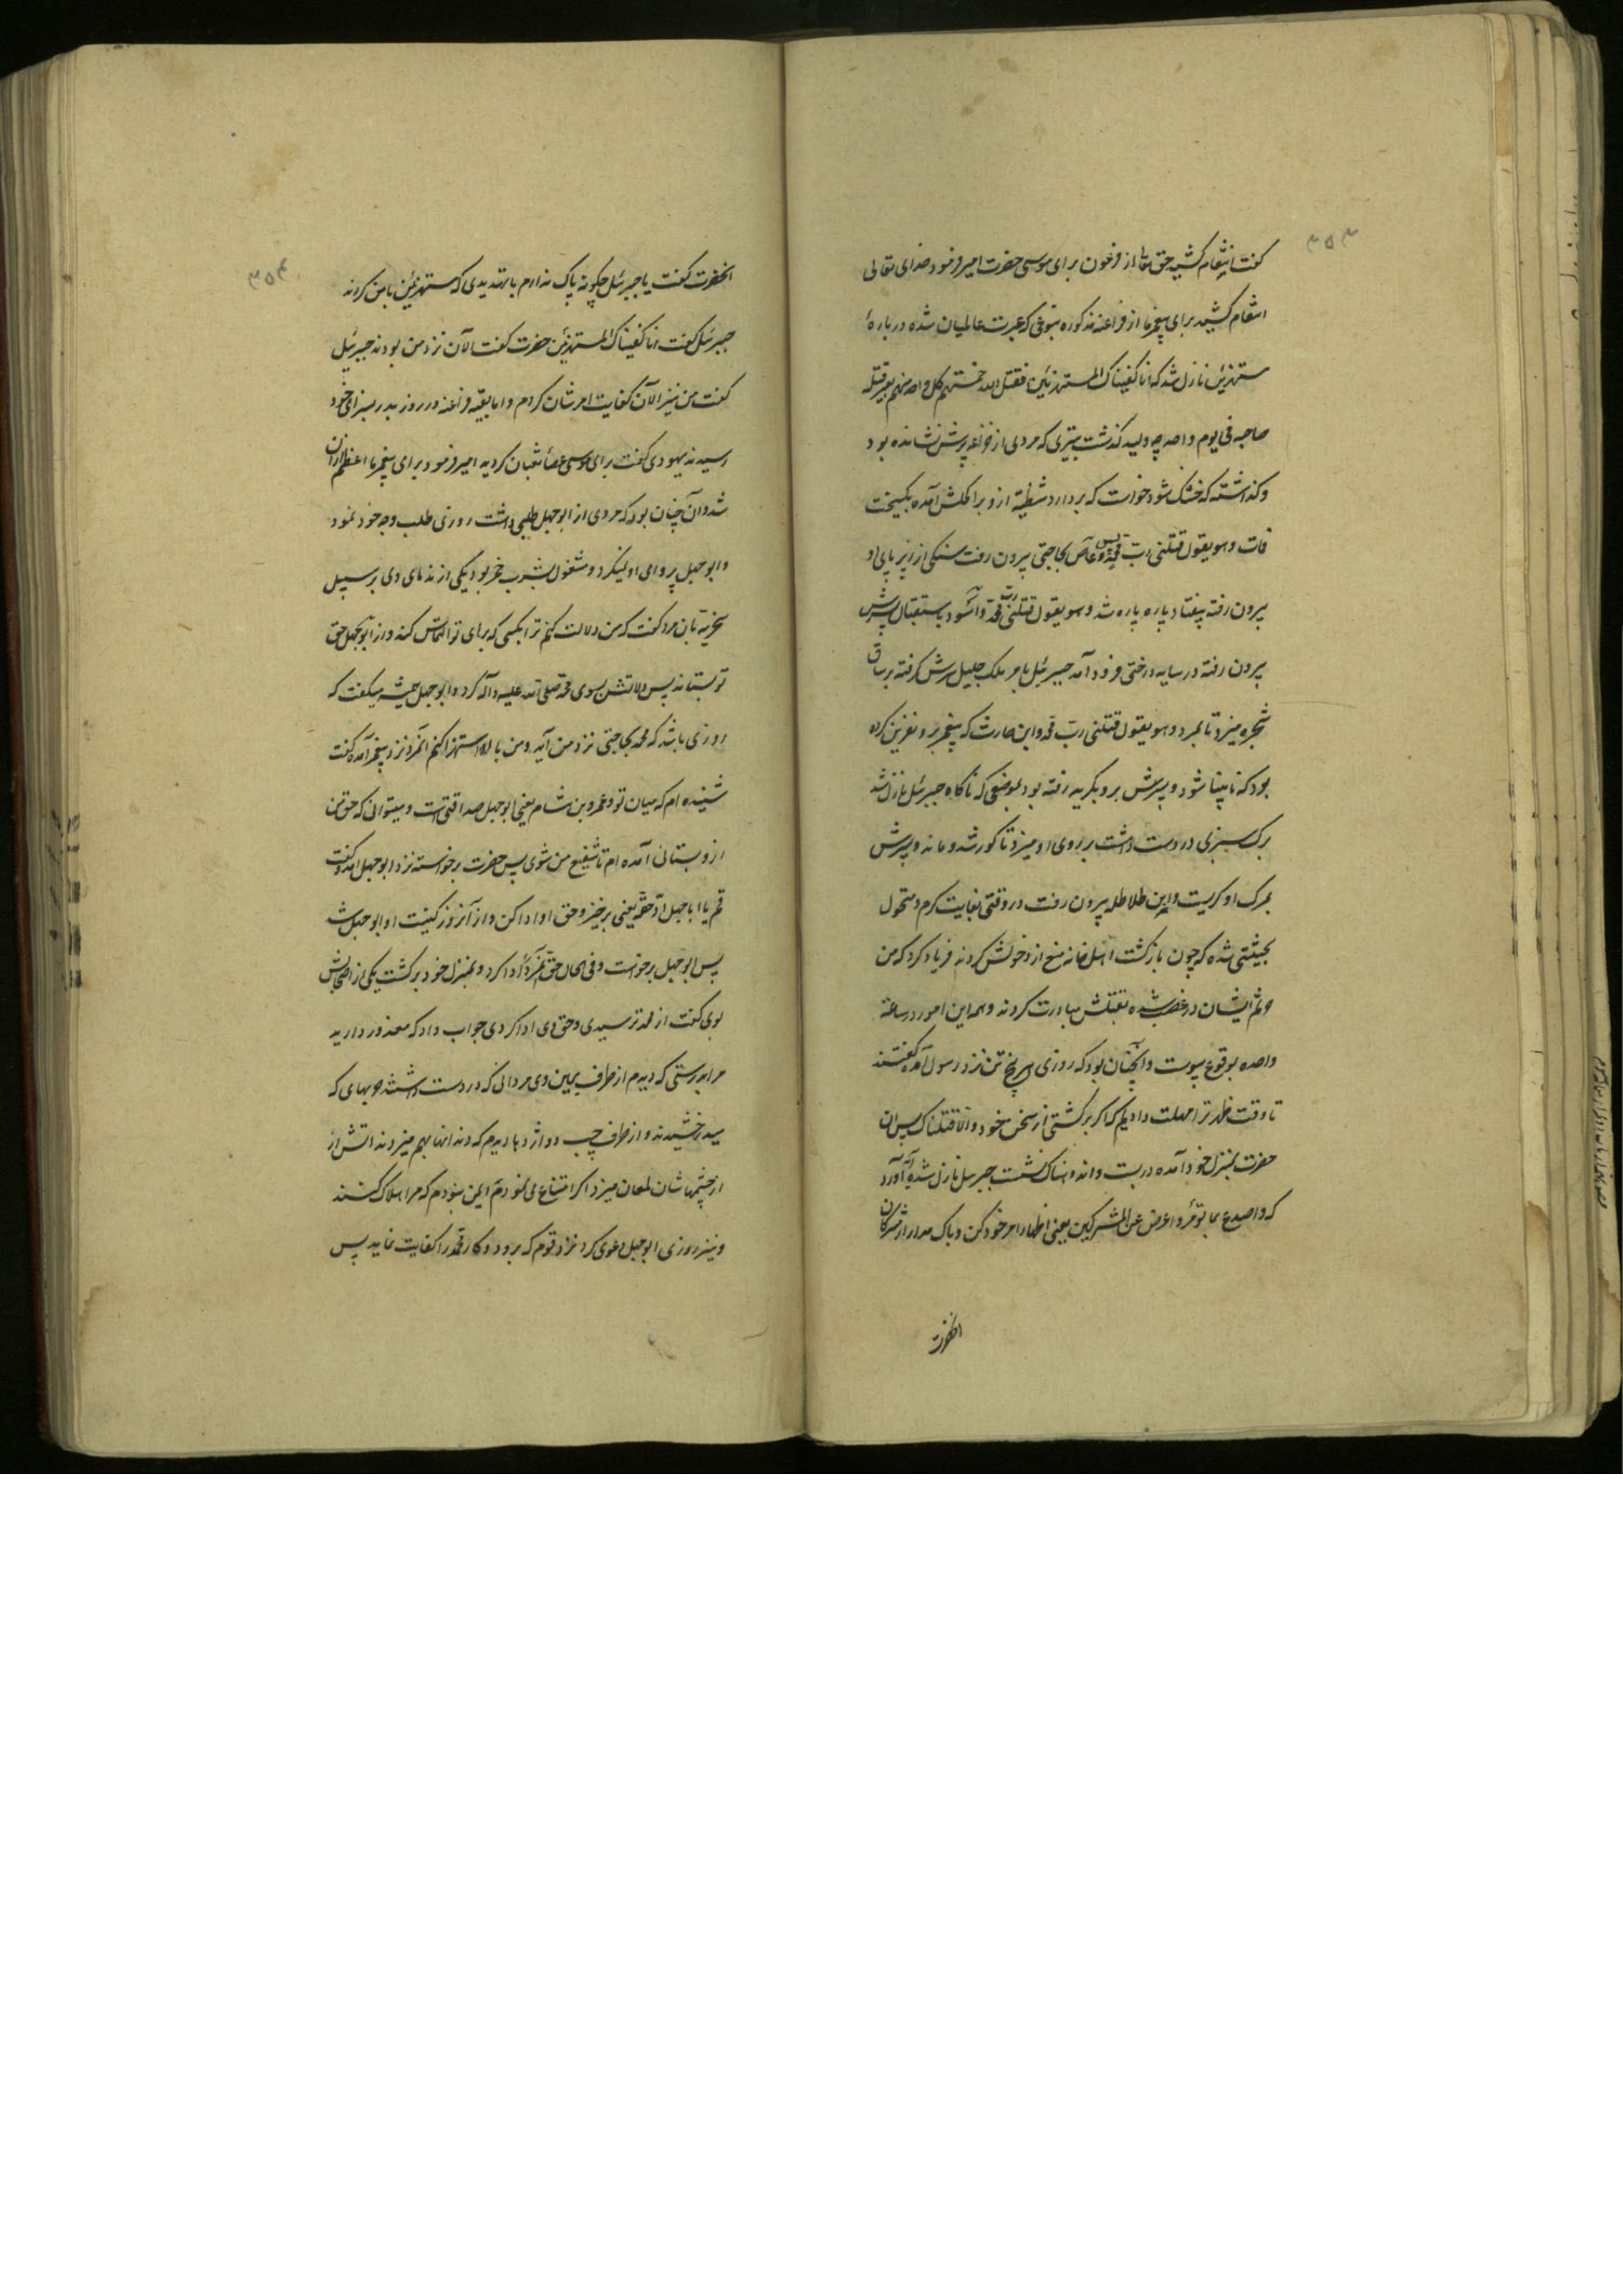 ۳۵۳
کفت انتقام کشید حق تعا از فرعون برای موسی حضرت امیر فرمود خدای تعالی
انتقام کشید برای پیغمبر ما از فراعنه مذکوره بنوعی که عبرت عالمیان شده درباره
مستهزئین نازل شد که انا کفیناک المستهزئین فقتل الله خمستهم کل واحد منهم بغیر قتلة
صاحبه فی یوم واحد چه ولید کذشت بتیری که مردی از خزاعه پرش نشانده بود
و کذاشته که خشک شود خواست که بردارد شظیة ازو بر اکحلش آمده بکسیخت
فمات و هو یقول قتلنی رب محمد پس و عاص بحاجتی بیرون رفت سنکی از زیر پای او
بیرون رفته بیفتاد پاره پاره شد و هو یقول قتلنی رب محمد و اسود باستقبال پسرش
بیرون رفته در سایه درختی فرود آمد جبرئیل بامر ملک جلیل سرش کرفته بر ساق
شجره میزد تا بمرد و هو یقول قتلنی رب محمد و ابن حارث که پیغمبر برو نفرین کرده
بود که نابینا شود و پسرش برو بکرید رفته بود بموضعی که ناکاه جبرئیل نازل شد
برک سبزی در دست داشت بر روی او میزد تا کور شد و ماند و پسرش
بمرک او کریست و ابن طلاطله بیرون رفت در وقتی بغایت کرم و متحول
بحبشی شده که چون بازکشت اهل خانه منع از دخولش کردند فریاد کرد که من
ایشان در غضب شده بقتلش مبادرت کردند و همه این امور در ساعة
واحده بوقوع پیوست و آنچنان بود که روزی هر پنج تن نزد رسول آمده کفتند
تا وقت ظهر ترا مهلت دادیم که اکر برکشتی از سخن خود و الا قتلناک پس آن
حضرت بمنزل خود آمده در بست و اندوهناک نشست جبرئیل نازل شده آیه آورد
که و اصدع بما تؤمر و اعرض عن المشرکین یعنی اظهار امر خود کن و باک مدار از مشرکان
انحضرت
۳۵۴
انحضرت کفت یا جبرئیل چکونه باک ندارم با تهدیدی که مستهزئین با من کردند
جبرئیل کفت انا کفیناک المستهزئین حضرت کفت الآن نزد من بودند جبرئیل
کفت من نیز الآن کفایت امرشان کردم و اما بقیه فراعنه در روز بدر بسزای خود
رسیدند یهودی کفت برای موسی عصا ثعبان کردید امیر فرمود برای پیغمبر ما اعظم از ان
شد و آن چنان بود که مردی از ابو جهل طلبی داشت روزی طلب وجه خود نمود
و ابو جهل پروای او نمیکرد و مشغول بشرب خمر بود یکی از ندمای وی بر سبیل
سخریه بان مرد کفت که من دلالت کنم ترا بکسی که برای تو التماس کند و از ابو جهل حق
تو بستاند پس دلالتش بسوی محمد صلی الله علیه و آله کرد و ابو جهل همیشه میکفت که
روزی باشد که محمد بحاجتی نزد من آید و من باو استهزا کنم انمرد نزد پیغمبر آمده کفت
شنیده ام که میان تو و عمرو بن هشام یعنی ابو جهل صداقتی است و میتوانی که حق من
ازو بستانی آمده ام تا شفیع من شوی پس حضرت برخواسته نزد ابو جهل آمد و کفت
قم یا ابا جهل اد حقه یعنی برخیز و حق او ادا کن و از آنروز کنیت او ابو جهل شد
پس ابو جهل برخواست و فی الحال حق انمرد ادا کرد و بمنزل خود برکشت یکی از اصحابش
بوی کفت از محمد ترسیدی و حق وی ادا کردی جواب داد که معذور دارید
مرا بدرستی که دیدم از طرف یمین وی مردانی که در دست داشتند حربهای که
میدرخشیدند و از طرف چپ دو اژدها دیدم که دندانها بهم میزدند اتش از
از چشمهاشان لمعان میزد اکر امتناع می نمودم ایمن نبودم که مرا هلاک کنند
و نیز روزی ابو جهل دعوی کرد نزد قوم که برود و کار محمد را کفایت نماید پس